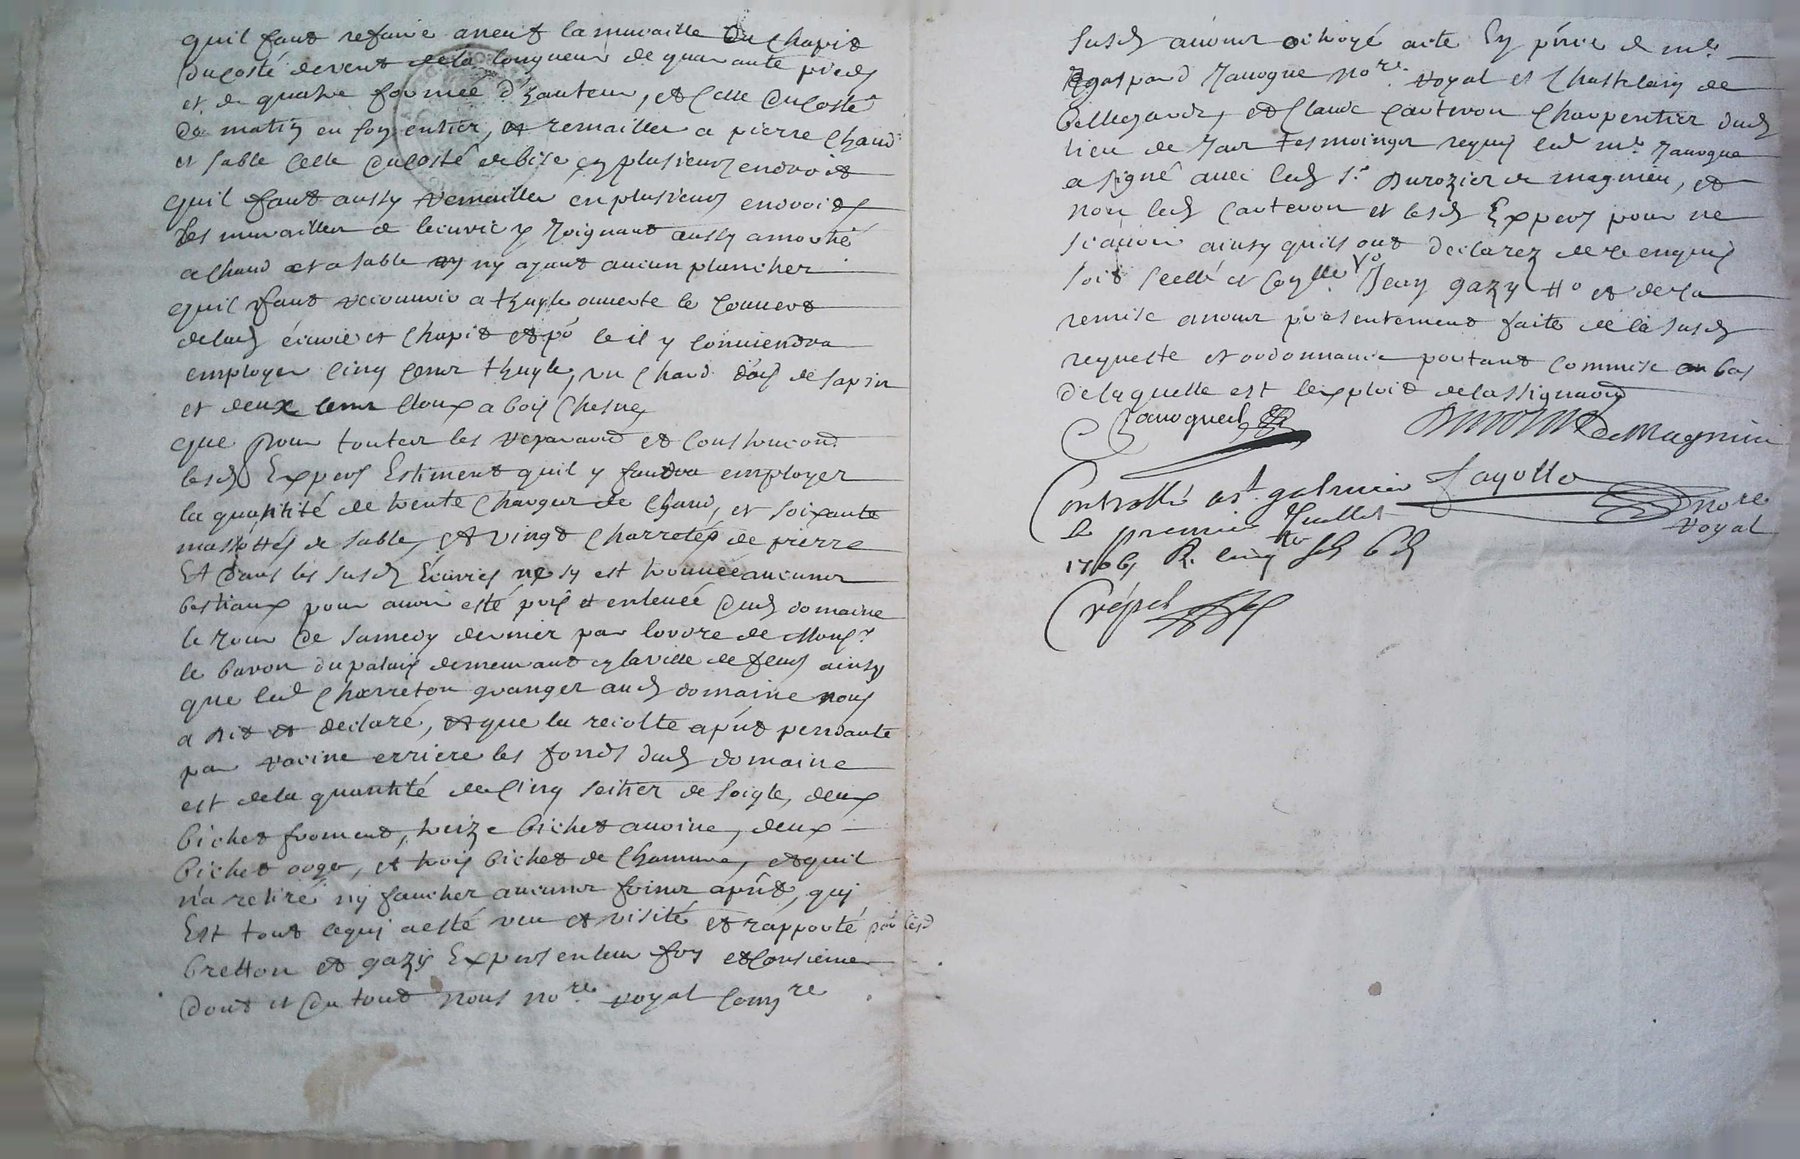 quil faut refaire aneuf la muraille du Chapit
du costé devent de la longueur de quarante pieds
et de quatre formée d'hauteur, et celle du costé
de matin en son entier, et remailler a pierre chaud
et sable celle du costé de bise en plusieurs endroit
quil faut aussy remailler en plusieurs endroits
les murailles de lecurie y joignant aussy a mortié
a chaud et a sable ny ayant aucun plancher
quil faut recouvrir a thuyle ouverte le couvert
delad écurie et chapit et po ce il y conviendra
employer cinq cent thuyle, un chard dais de sapin
et deux cent cloux a bois chesne
que pour toutes les reparaons et constructions
lesd Experts Estiment quil y faudra employer
la quantité de trente charges de chaud, et soixante
massottes de sable, et vingt charrotés de pierre
Et dans les susd Ecuries ne sy est trouvée aucunes
bestiaux pour avoir esté pris et enlevée dud domaine
le jour de samedy dernier par lordre de Monsr
le baron du palais demeurant en la ville de feurs ainsy
que led Charreton granger aud domaine nous
a dit et declaré, et que la recolte apñt pendante
par racine erriere les fonds dud domaine
est de la quantité de cinq seitier de soigle, deux
bichet froment, treize bichet avoine, deux
bichet orge, et trois bichet de chanvre, et quil
na retiré ny faucher aucunes foins apñt, qui
Est tout cequi a esté veu et visité et rapporté par lesd
bretton et gazy Experts en leur foy et consience
dont et du tout nous nore royal comre
susd avons octroyé acte En pñce de me
gaspard Janogue nore royal et Chastelain de
bellegarde, et Claude Couteron Charpentier dud
lieu de Jas tesmoings requis led me Janogue
a signé avec led sr Durozier de magnieu, et
non led Couteron et lesd Experts pour ne
scavoir ainsy quils ont declarez de ce enquis
soit scellé et Jean gazy et de la
remise anous presentement faite de la susd
requeste et ordonnance portant commise au bas
de laquelle est lexploit de lassignaon
Janogue Durozier De Magnieu
Controllé a st galmier fayolle nore
le premier Juillet royal
1706 R. cinq sols
Crépet